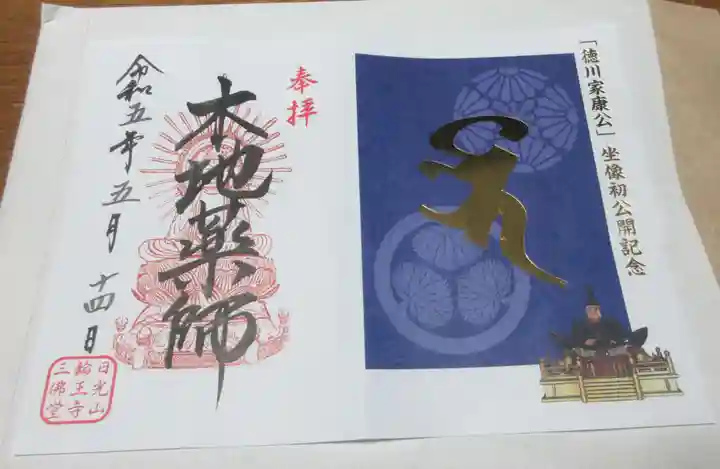 「徳川家康公」坐像初公開記念
奉拝
本地薬師
令和五年五月十四日
日光山
輪王寺
三佛堂